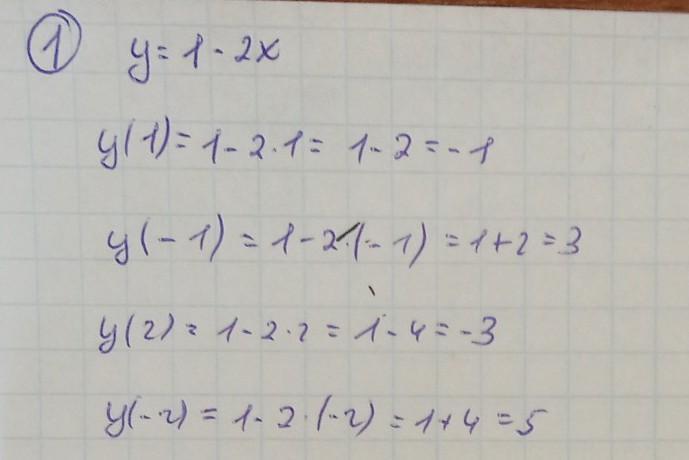 1 y = 1 - 2x
y(1) = 1 - 2 · 1 = 1 - 2 = -1
y(-1) = 1 - 2 · (-1) = 1 + 2 = 3
y(2) = 1 - 2 · 2 = 1 - 4 = -3
y(-2) = 1 - 2 · (-2) = 1 + 4 = 5